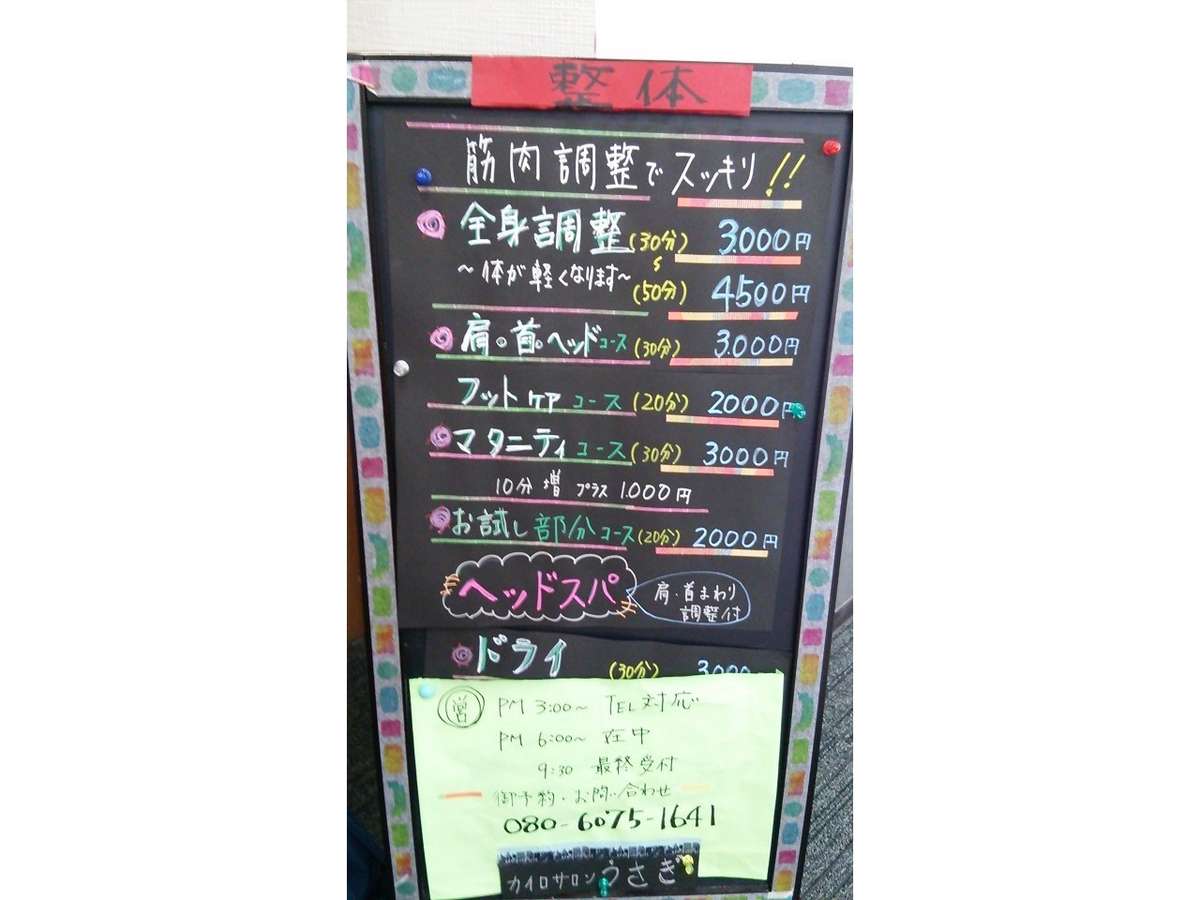 整体
筋肉調整でスッキリ!!
全身調整(30分) 3.000円
~体が軽くなります~
(50分) 4500円
肩・首・ヘッドコース(30分) 3.000円
フットケアコース(20分) 2000円
マタニティコース(30分) 3000円
10分増 プラス 1.000円
お試し部分コース(20分) 2000円
ヘッドスパ
肩・首まわり
調整付
ドライ (30分) 3.000
営 PM 3:00~ TEL対応
PM 6:00~ 在中
9:30 最終受付
御予約・お問い合わせ
080-6075-1641
カイロサロンうさぎ